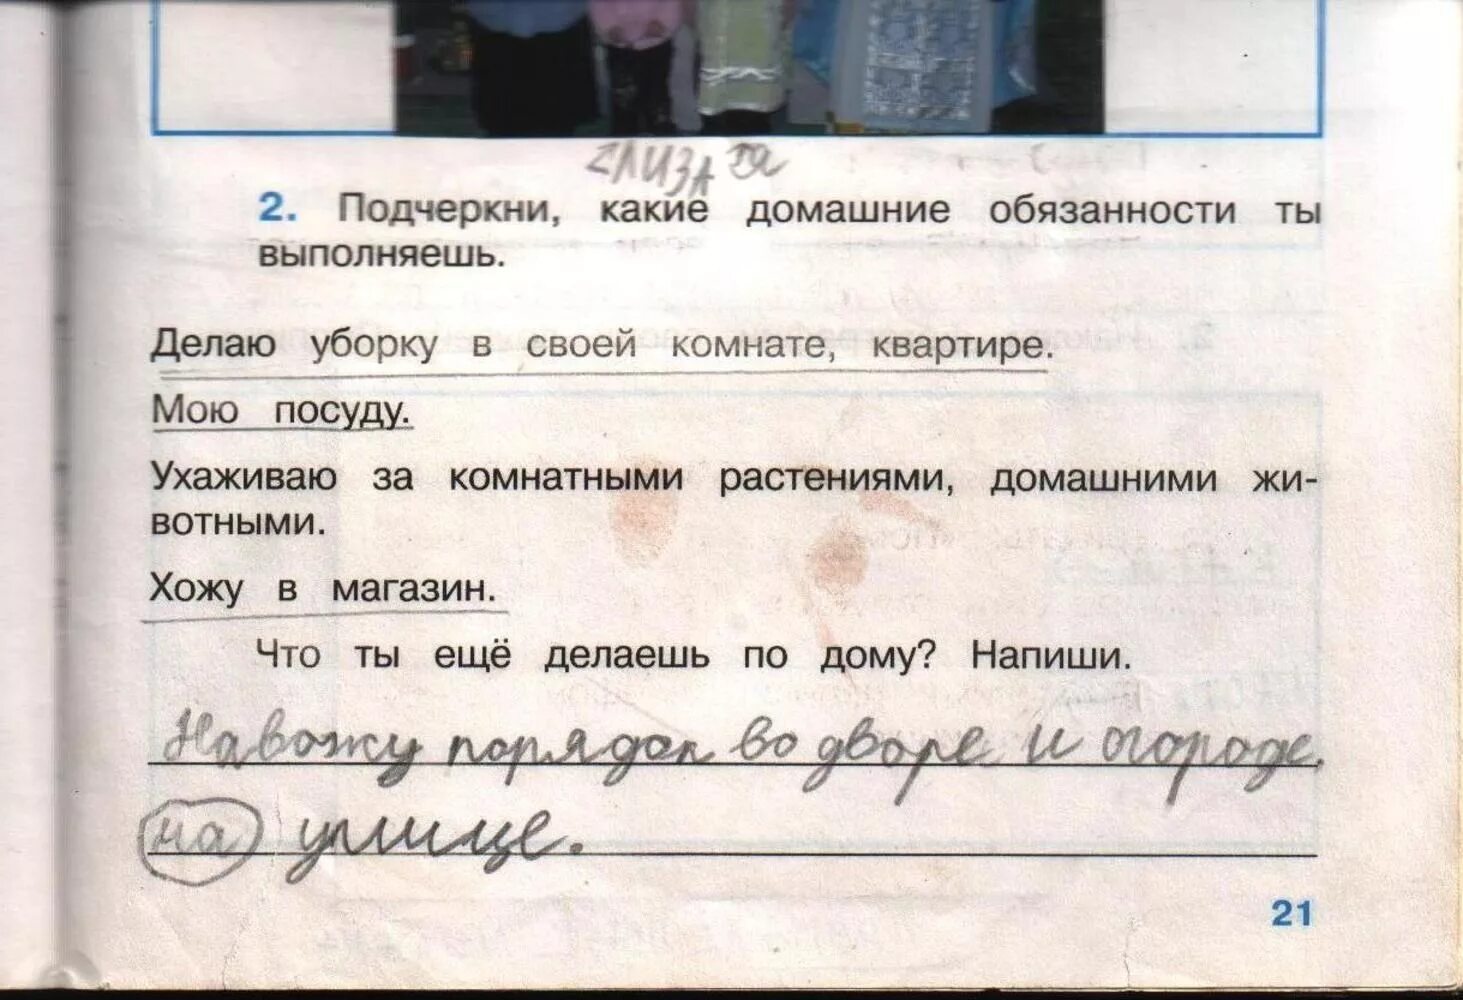 2. Подчеркни, какие домашние обязанности ты
выполняешь.
Делаю уборку в своей комнате, квартире.
Мою посуду.
Ухаживаю за комнатными растениями, домашними жи-
вотными.
Хожу в магазин.
Что ты ещё делаешь по дому? Напиши.
Навожу порядок во дворе и огороде,
на улице.
21